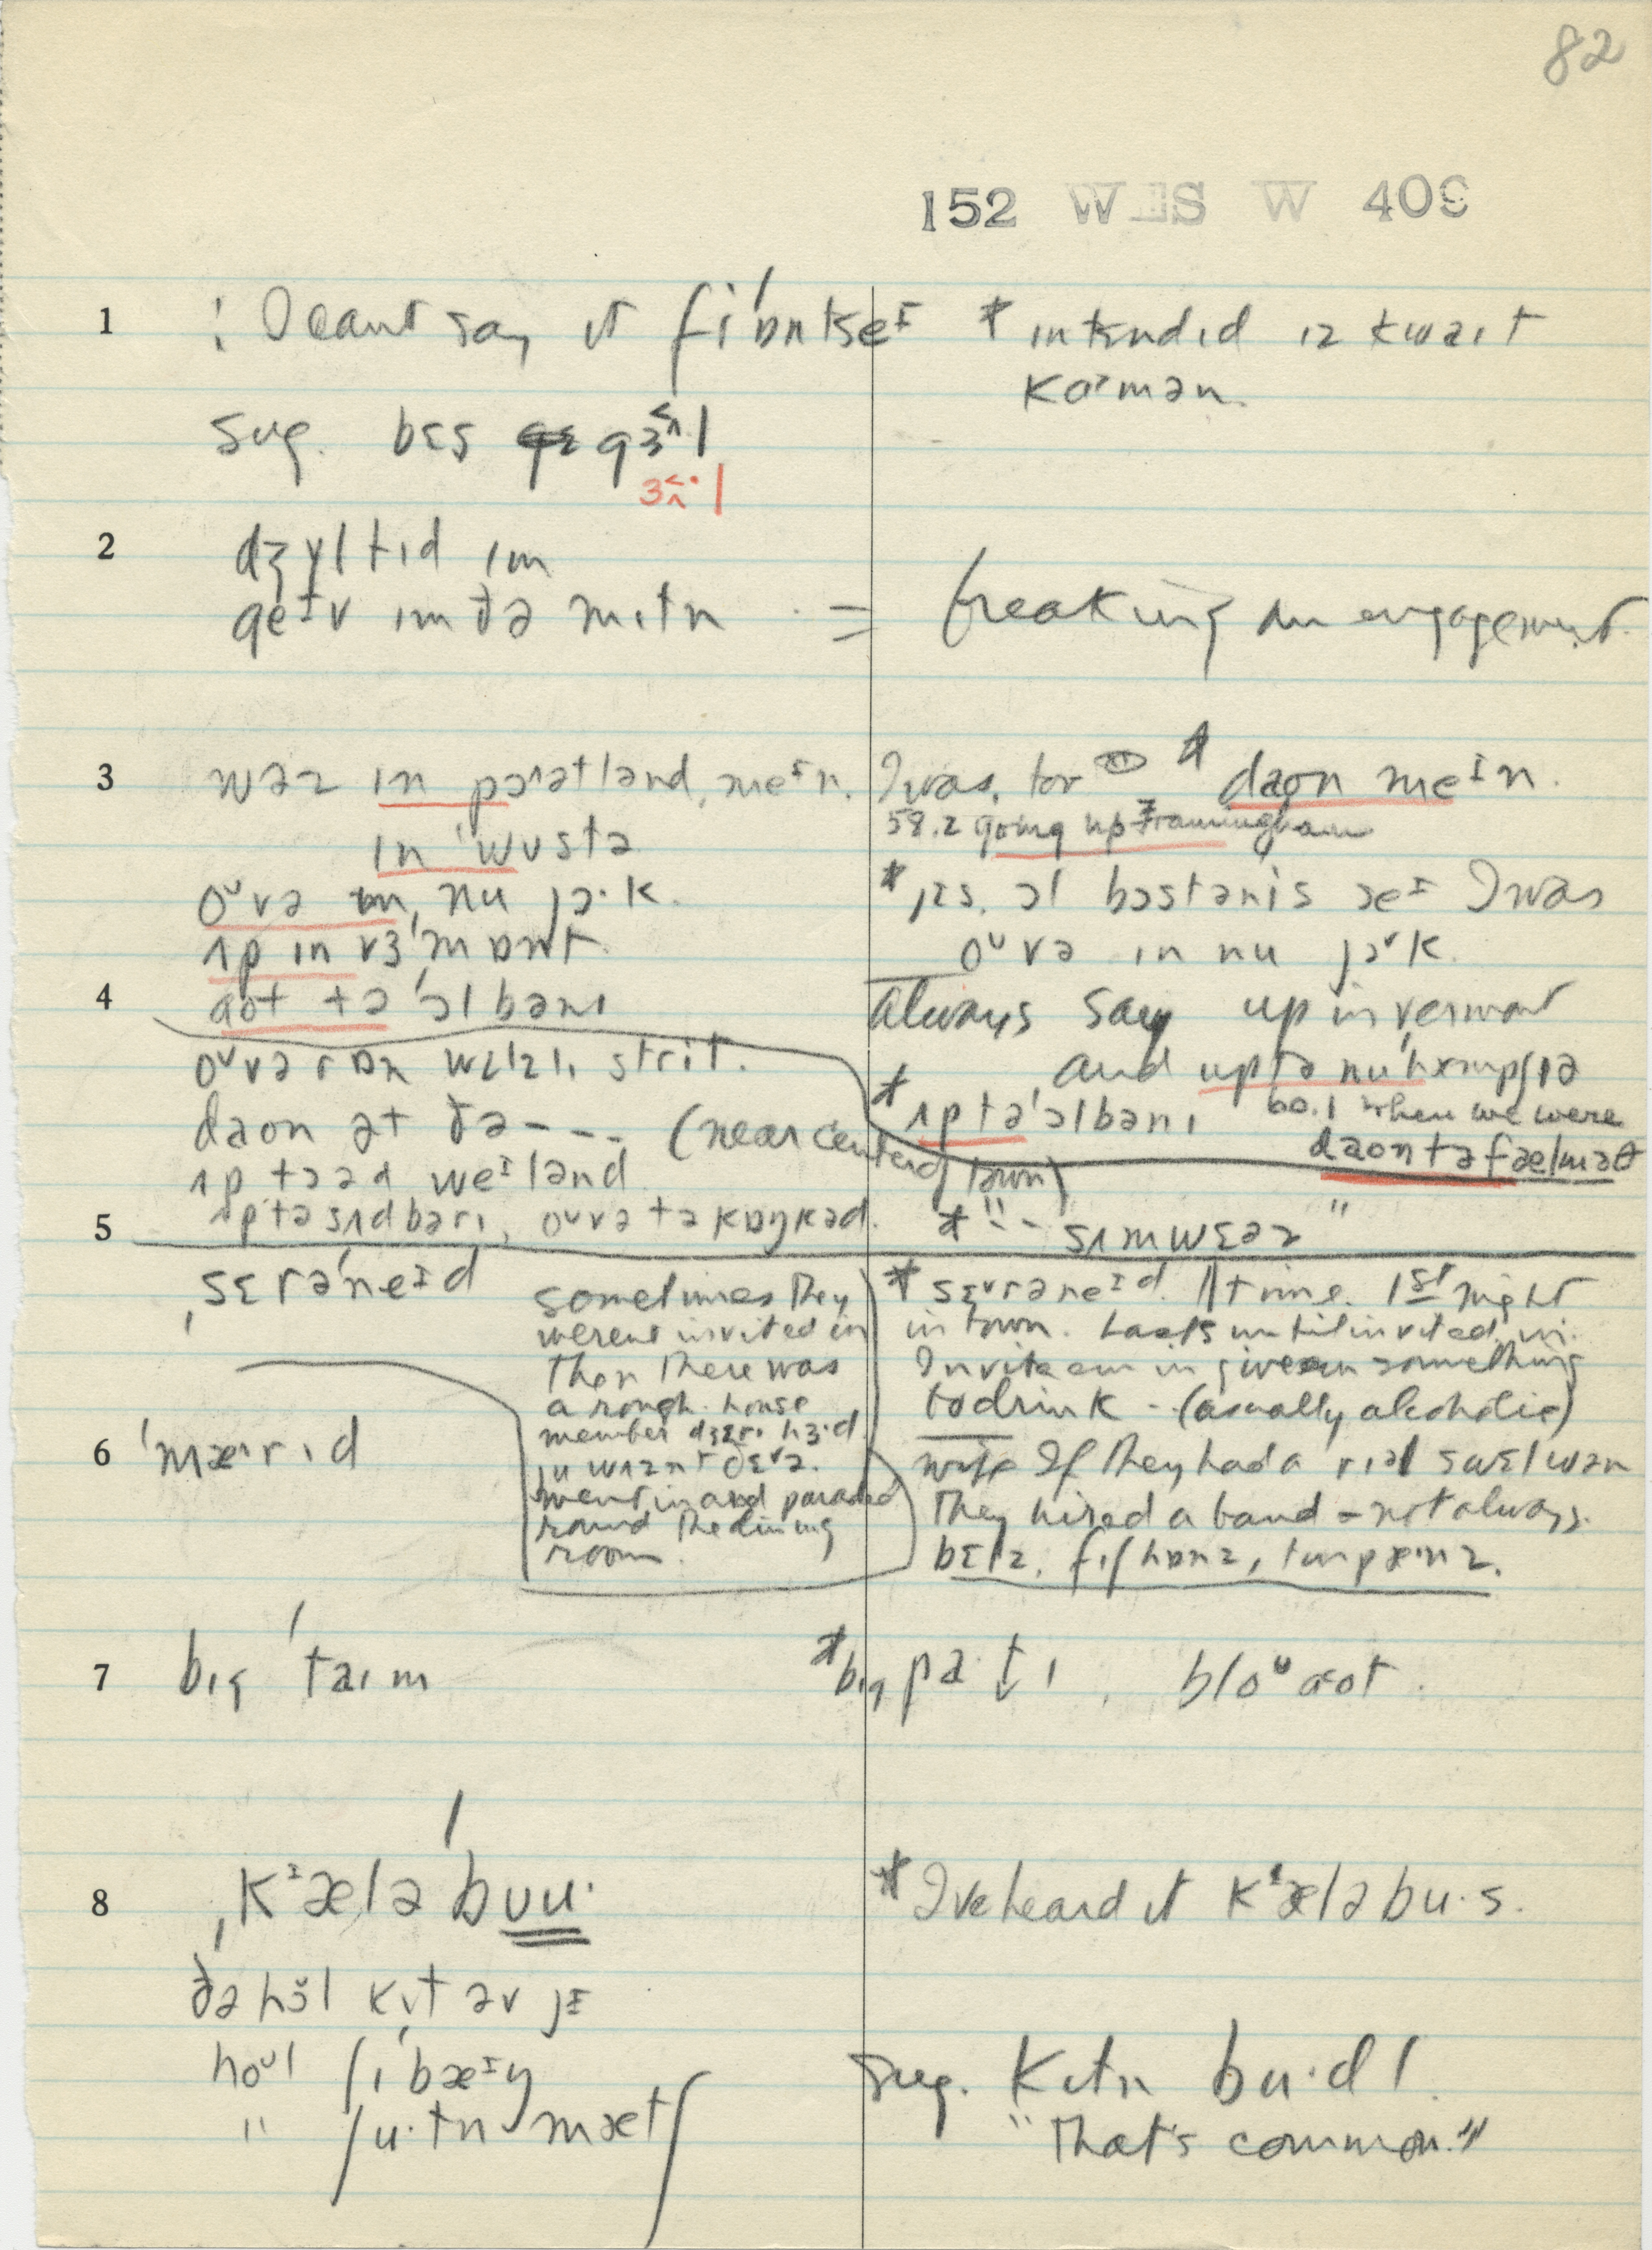 82
152 WES W 409
1 ⁝ I can't say it fi'ɒntseɪ * ɪntɛndɪd ɪz kwaɪt
kɒmən.
sug. bɛs gɜ^l
ɜ^·l
2 dʒɪltɪd ɪm
geɪv ɪm ðə mɪtn = breaking an engagement.
3 wəz ɪn pɔətlənd, meɪn. I was. * daon meɪn.
ɪn 'wʊstə 58.2 going up Framingham
oʊvə ɪn, nu jɔ·k. * jɛs. ɔl bɔstənɪs seɪ I was
ʌp ɪn vɜ'mɒnt. oʊvə ɪn nu jɔ·k.
4 aot tə 'ɔlbənɪ always say up in vermont
oʊvə ɒn wɛlzlɪ strit. and up tə nu'hæmpʃɪə
daon ət ðə --- (near center of town) * ʌp tə 'ɔlbənɪ 60.1 when we were
daon tə fælməθ
ʌp tə weɪlənd
5 ʌp tə sʌdbərɪ, oʊvə tə kɒŋkəd. * " -- sʌmwɛəz "
ˌsɛrə'neɪd
sometimes they
weren't invited in
then there was
a rough house
member dʒɛrɪ hɜ·d
ju wʌznt ðɛə.
went in and paraded
round the dining
room.
* sɛrəneɪd. 11 time. 1st night
in town. Lasts until invited in.
Invite em in give em something
to drink - (usually alcoholic)
6 'mærɪd
wife If they had a rɪəl swɛl wən
they hired a band - not always.
bɛlz, fɪʃhɒnz, tɪnpænz.
7 bɪg 'taɪm * bɪg pa·tɪ, bloʊ aot.
8 ˌkɪælə'bʊu· * I've heard it kɪæləbu·s.
ðə hol kɪt əv jɪ
hoʊl ʃɪ'bæɪŋ sug. kɪtn bu·dl.
" ʃu·tn mætʃ "That's common."